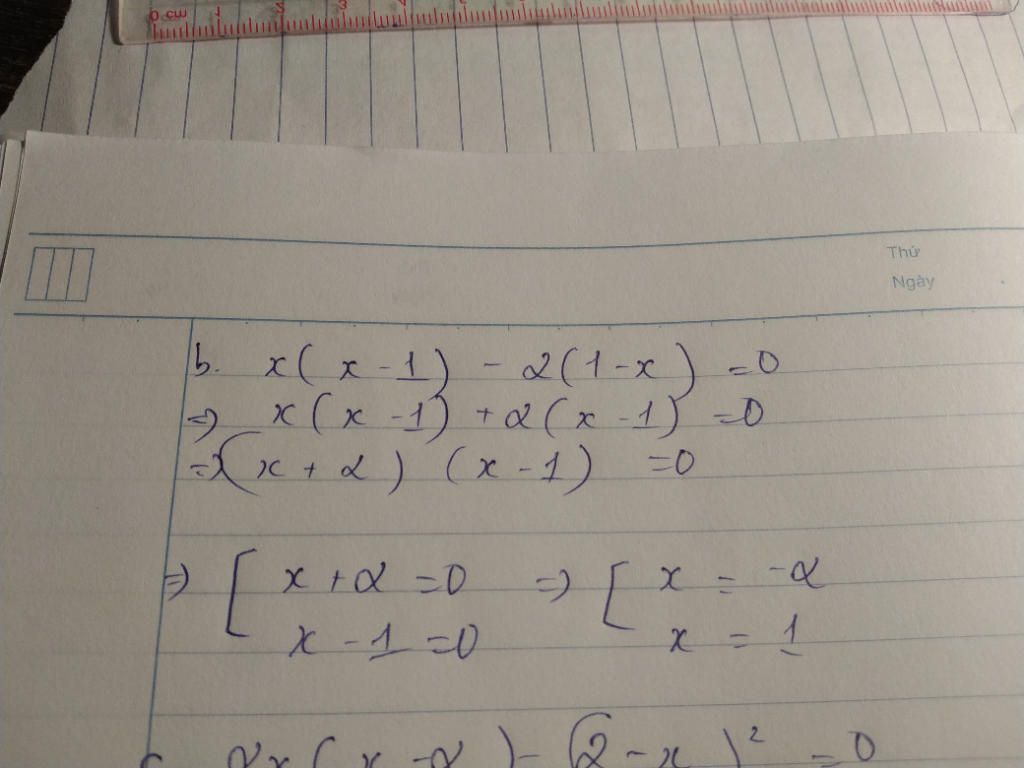 0 cm 1 2 3 4
Thứ
Ngày
b. x(x-1) - 2(1-x) = 0
=> x(x-1) + 2(x-1) = 0
=> (x+2) (x-1) = 0
=> [ x+2 = 0 => [ x = -2
x-1 = 0 x = 1
c 2x(x-2) - (2-x)² = 0